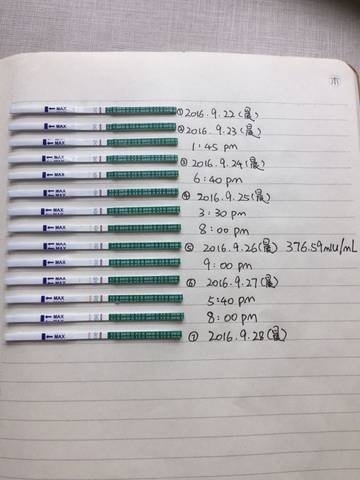 MAX ① 2016.9.22(晨)
MAX ② 2016.9.23(晨)
MAX 1:45 pm
MAX ③ 2016.9.24(晨)
MAX 6:40 pm
MAX ④ 2016.9.25(晨)
MAX 3:30 pm
MAX 8:00 pm
MAX ⑤ 2016.9.26(晨) 376.59mIU/mL
MAX 9:00 pm
MAX ⑥ 2016.9.27(晨)
MAX 5:40 pm
MAX 8:00 pm
MAX ⑦ 2016.9.28(晨)